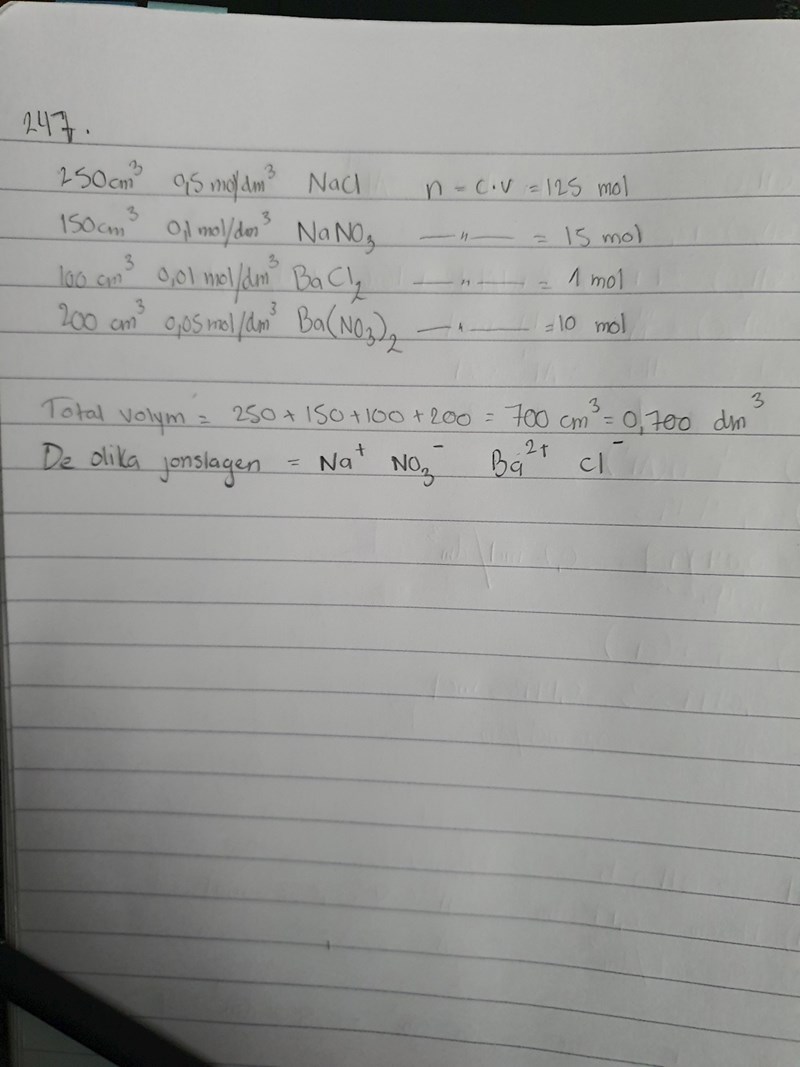 247.
250cm³ 0,5 mol/dm³ NaCl n = c·v = 125 mol
150cm³ 0,1 mol/dm³ NaNO₃ —"— = 15 mol
100 cm³ 0,01 mol/dm³ BaCl₂ —"— = 1 mol
200 cm³ 0,05 mol/dm³ Ba(NO₃)₂ —"— = 10 mol
Total volym = 250 + 150 + 100 + 200 = 700 cm³ = 0,700 dm³
De olika jonslagen = Na⁺ NO₃⁻ Ba²⁺ Cl⁻